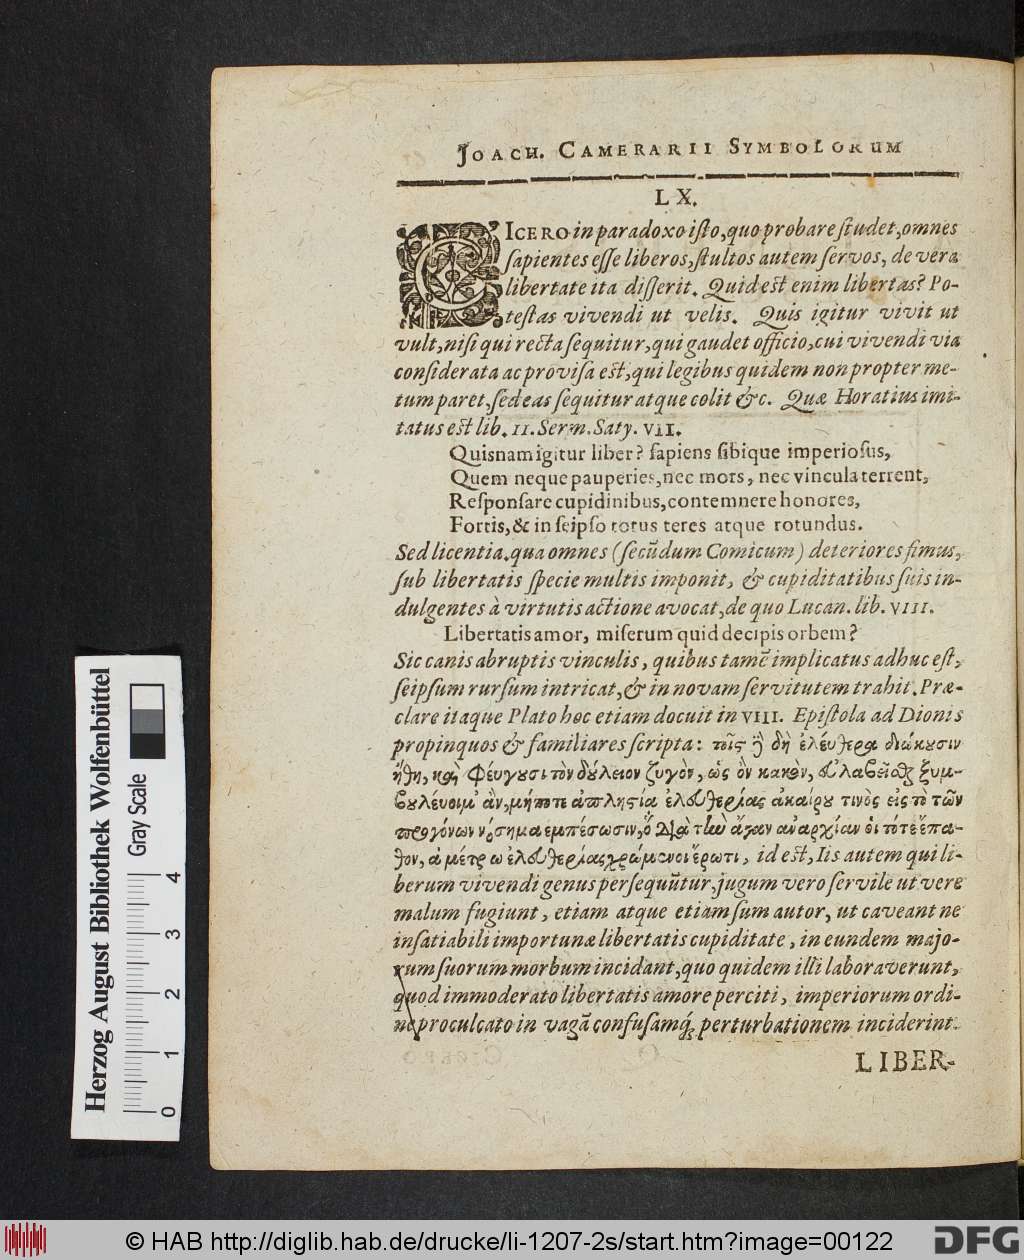 JOACH. CAMERARII SYMBOLORUM
LX.
CICERO in paradoxo isto, quo probare studet, omnes
sapientes esse liberos, stultos autem servos, de vera
libertate ita disserit. Quid est enim libertas? Po-
testas vivendi ut velis. Quis igitur vivit ut
vult, nisi qui recta sequitur, qui gaudet officio, cui vivendi via
considerata ac provisa est, qui legibus quidem non propter me-
tum paret, sed eas sequitur atque colit &c. Quæ Horatius imi-
tatus est lib. II. Serm. Saty. VII.
Quisnam igitur liber? sapiens sibique imperiosus,
Quem neque pauperies, nec mors, nec vincula terrent,
Responsare cupidinibus, contemnere honores,
Fortis, & in seipso totus teres atque rotundus.
Sed licentia, qua omnes (secũdum Comicum) deteriores simus,
sub libertatis specie multis imponit, & cupiditatibus suis in-
dulgentes à virtutis actione avocat, de quo Lucan. lib. VIII.
Libertatis amor, miserum quid decipis orbem?
Sic canis abruptis vinculis, quibus tamẽ implicatus adhuc est,
seipsum rursum intricat, & in novam servitutem trahit. Præ-
clare itaque Plato hoc etiam docuit in VIII. Epistola ad Dionis
propinquos & familiares scripta: τοῖς ἢ δὴ ἐλεύθερα διώκουσιν
ἤθη, καὶ φεύγουσι τὸν δούλειον ζυγὸν, ὡς ὂν κακὸν, εὐλαβεῖσθαι ξυμ-
βουλεύοιμ' ἂν, μήποτε ἀπληστία ἐλευθερίας ἀκαίρου τινὸς εἰς τὸ τῶν
προγόνων νόσημα εμπέσωσιν, ὃ διὰ τὴν ἄγαν αναρχίαν ὁι τότε ἔπα-
θον, ἀμέτρω ἐλευθερίας χρώμενοι ἔρωτι, id est, Iis autem qui li-
berum vivendi genus persequũtur, jugum vero servile ut vere
malum fugiunt, etiam atque etiam sum autor, ut caveant ne
insatiabili importunæ libertatis cupiditate, in eundem majo-
rum suorum morbum incidant, quo quidem illi laboraverunt,
quod immoderato libertatis amore perciti, imperiorum ordi-
ne proculcato in vagã confusamq́; perturbationem inciderint.
LIBER-
Herzog August Bibliothek Wolfenbüttel
Gray Scale
0 1 2 3 4
© HAB http://diglib.hab.de/drucke/li-1207-2s/start.htm?image=00122
DFG